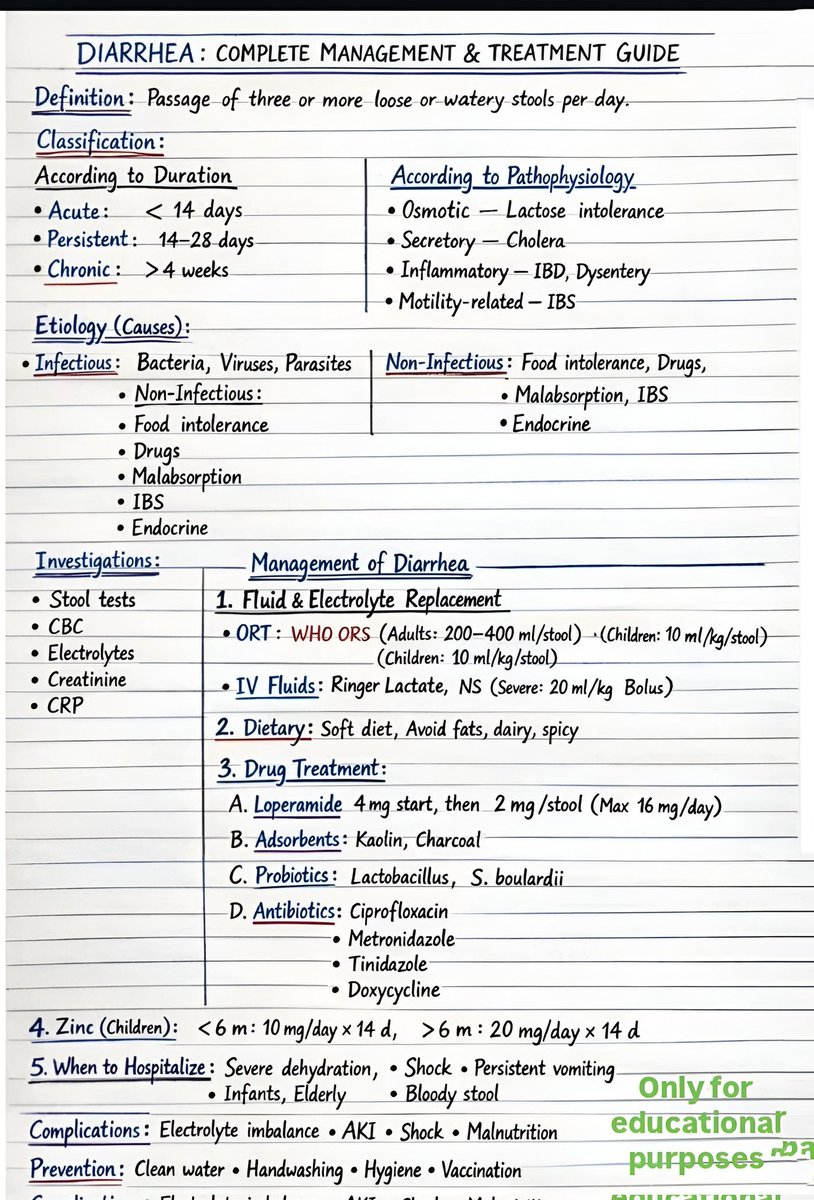 DIARRHEA: COMPLETE MANAGEMENT & TREATMENT GUIDE
Definition: Passage of three or more loose or watery stools per day.
Classification:
According to Duration
• Acute: < 14 days
• Persistent: 14–28 days
• Chronic: >4 weeks
According to Pathophysiology
• Osmotic — Lactose intolerance
• Secretory — Cholera
• Inflammatory — IBD, Dysentery
• Motility-related — IBS
Etiology (Causes):
• Infectious: Bacteria, Viruses, Parasites
• Non-Infectious:
• Food intolerance
• Drugs
• Malabsorption
• IBS
• Endocrine
Non-Infectious: Food intolerance, Drugs,
• Malabsorption, IBS
• Endocrine
Investigations:
• Stool tests
• CBC
• Electrolytes
• Creatinine
• CRP
Management of Diarrhea
1. Fluid & Electrolyte Replacement
• ORT: WHO ORS (Adults: 200–400 ml/stool) · (Children: 10 ml/kg/stool)
(Children: 10 ml/kg/stool)
• IV Fluids: Ringer Lactate, NS (Severe: 20 ml/kg Bolus)
2. Dietary: Soft diet, Avoid fats, dairy, spicy
3. Drug Treatment:
A. Loperamide 4 mg start, then 2 mg/stool (Max 16 mg/day)
B. Adsorbents: Kaolin, Charcoal
C. Probiotics: Lactobacillus, S. boulardii
D. Antibiotics: Ciprofloxacin
• Metronidazole
• Tinidazole
• Doxycycline
4. Zinc (Children): <6 m: 10 mg/day × 14 d, >6 m: 20 mg/day × 14 d
5. When to Hospitalize: Severe dehydration, • Shock • Persistent vomiting
• Infants, Elderly • Bloody stool
Complications: Electrolyte imbalance • AKI • Shock • Malnutrition
Prevention: Clean water • Handwashing • Hygiene • Vaccination
Only for
educational
purposes